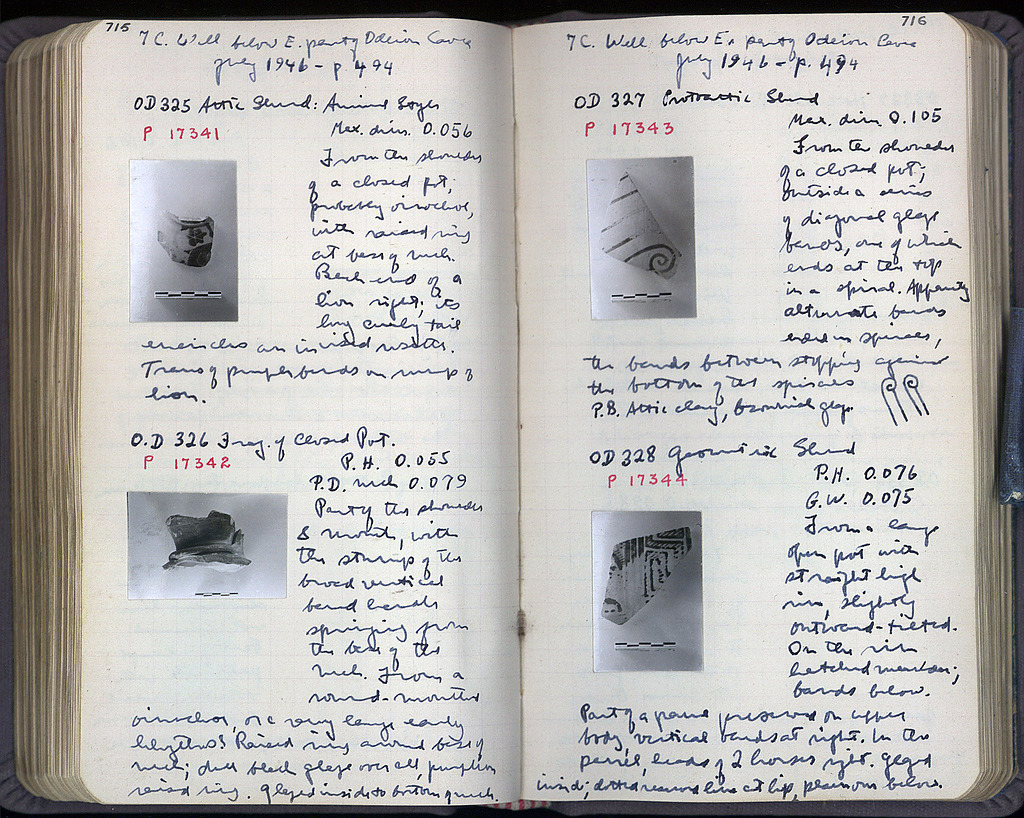 715
7 C. Well below E. party Odeion Cavea
July 1946 - p. 494
OD 325 Attic Sherd: Animal Style
P 17341
Max. dim. 0.056
From the shoulder
of a closed pot,
probably oinochoe,
with raised ring
at base of neck.
Back end of a
lion right; its
long curly tail
encircles an incised rosette.
Traces of purple bands on rump of
lion.
O.D 326 Frag. of Closed Pot.
P 17342
P.H. 0.055
P.D. neck 0.079
Part of the shoulder
& mouth, with
the stump of the
broad vertical
band handle
springing from
the base of the
neck. From a
round-mouthed
oinochoe, or a very large early
lekythos? Raised ring around base of
neck; dull black glaze over all, purple on
raised ring. Glazed inside to bottom of neck.
716
7 C. Well below E. party Odeion Cavea
July 1946 - p. 494
OD 327 Protoattic Sherd
P 17343
Max. dim. 0.105
From the shoulder
of a closed pot;
outside a series
of diagonal glaze
bands, one of which
ends at the top
in a spiral. Apparently
alternate bands
ended in spirals,
the bands between stopping against
the bottom of the spirals
P.B. Attic clay, brownish glaze.
OD 328 Geometric Sherd
P 17344
P.H. 0.076
G.W. 0.075
From a large
open pot with
straight high
rim, slightly
outward-tilted.
On the rim
hatched meander;
bands below.
Part of a panel preserved on upper
body, vertical bands at right. In the
panel, heads of 2 horses right. Glazed
inside; dotted reserved line at lip, plain one below.